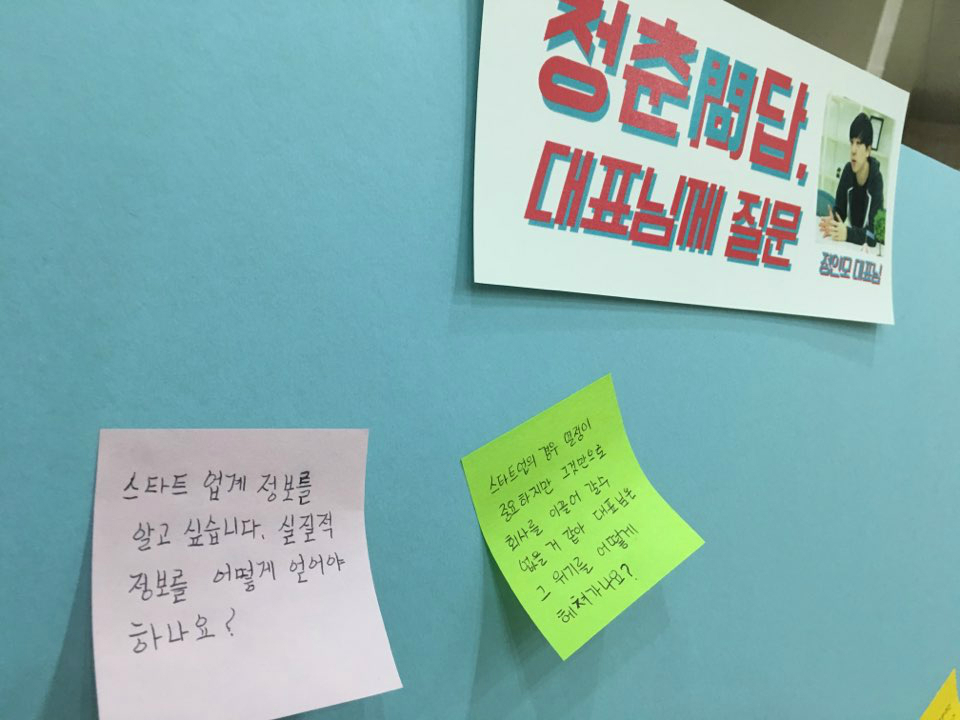 정춘問답,
대표님께 질문
정인모 대표님
스타트 업계 정보를
알고 싶습니다. 실질적
정보를 어떻게 얻어야
하나요?
스타트업의 경우 열정이
중요하지만 그것만으로
회사를 이끌어 갈수
없을 거 같아 대표님은
그 위기를 어떻게
헤쳐가나요?